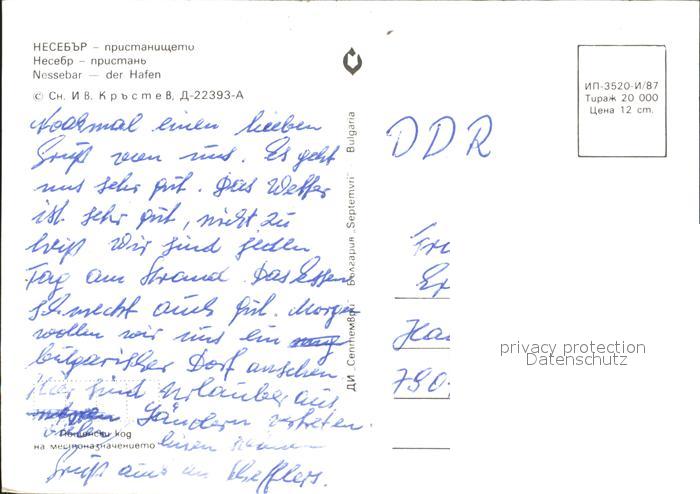 НЕСЕБЪР – пристанището
Несебр – пристань
Nessebar — der Hafen
© Сн. И в. К р ъ с т е в, Д-22393-А
Nochmal einen lieben
Gruß von uns. Es geht
uns sehr gut. Das Wetter
ist sehr gut, nicht zu
heiß. Wir sind jeden
Tag am Strand. Das Essen
schmeckt auch gut. Morgen
wollen wir uns ein
bulgarisches Dorf ansehen.
Hier sind Urlauber aus
Ländern vertreten.
vielen
Пощенски код
на местоназначението
einen
Gruß auch an Schefflers.
ДИ „Септември" България „Septemvri" Bulgaria
ИП-3520-И/87
Тираж 20 000
Цена 12 ст.
DDR
790
privacy protection
Datenschutz